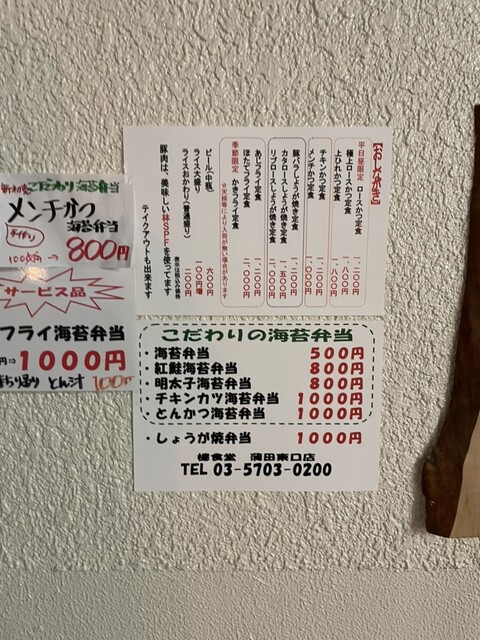 【おしながき】
平日昼限定 ロースかつ定食 一、二〇〇円
極上ロースかつ定食 一、八〇〇円
上ひれかつ定食 一、八〇〇円
チキンかつ定食 一、二〇〇円
メンチかつ定食 一、〇〇〇円
豚バラしょうが焼き定食 一、二〇〇円
カタロースしょうが焼き定食 一、五〇〇円
リブロースしょうが焼き定食 二、〇〇〇円
あじフライ定食 一、二〇〇円
ほたてフライ定食 二、〇〇〇円
季節限定 かきフライ定食
※天候等により入荷が無い場合があります
ビール(中瓶) 六〇〇円
ライス大盛り 一〇〇円増
ライスおかわり(普通盛り) 二〇〇円
表示は税込み価格
豚肉は、美味しい林SPFを使ってます
テイクアウトも出来ます
こだわり海苔弁当
メンチかつ
海苔弁当
1000円→800円
サービス品
フライ海苔弁当
円⇒1000円
とん汁 100円
こだわりの海苔弁当
・海苔弁当 500円
・紅鮭海苔弁当 800円
・明太子海苔弁当 800円
・チキンカツ海苔弁当 1000円
・とんかつ海苔弁当 1000円
・しょうが焼弁当 1000円
食堂 蒲田東口店
TEL 03-5703-0200